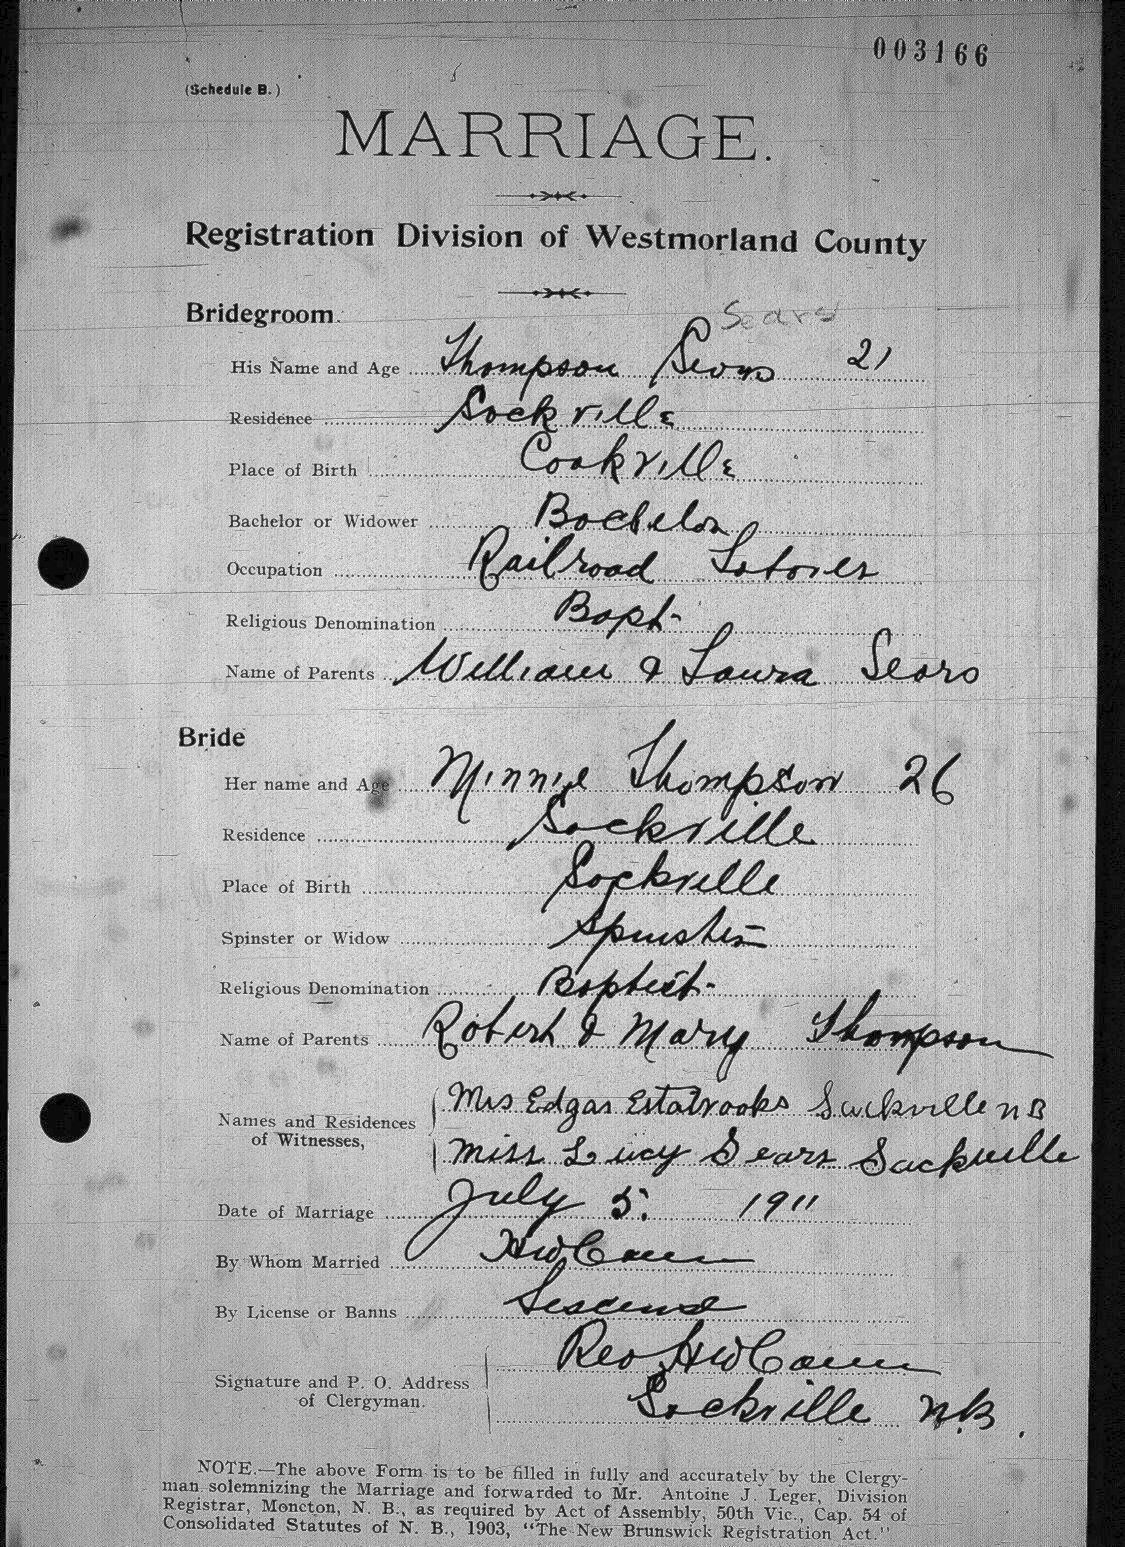 003166
(Schedule B.)
MARRIAGE.
Registration Division of Westmorland County
Bridegroom.
Sears
His Name and Age Thompson Sears 21
Residence Sackville
Place of Birth Cookville
Bachelor or Widower Bachelor
Occupation Railroad Laborer
Religious Denomination Bapt-
Name of Parents William & Laura Sears
Bride
Her name and Age Minnie Thompson 26
Residence Sackville
Place of Birth Sackville
Spinster or Widow Spinster
Religious Denomination Baptist-
Name of Parents Robert & Mary Thompson
Names and Residences of Witnesses, Mrs Edgar Estabrooks Sackville NB
Miss Lucy Sears Sackville
Date of Marriage July 5. 1911
By Whom Married HW Cann
By License or Banns License
Rev HW Cann
Signature and P. O. Address
of Clergyman. Sackville N.B.
NOTE.—The above Form is to be filled in fully and accurately by the Clergy-
man solemnizing the Marriage and forwarded to Mr. Antoine J. Leger, Division
Registrar, Moncton, N. B., as required by Act of Assembly, 50th Vic., Cap. 54 of
Consolidated Statutes of N. B., 1903, "The New Brunswick Registration Act."